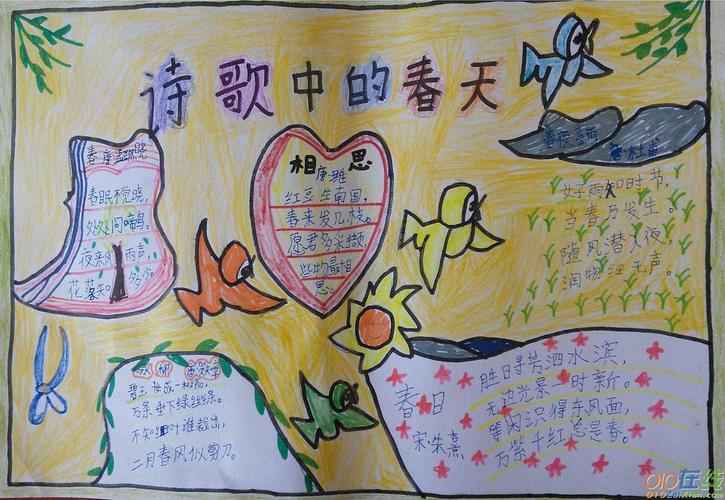 诗歌中的春天
春晓
春眠不觉晓,
处处闻啼鸟。
夜来 雨声
花落知
相思
唐·王维
红豆生南国,
春来发几枝。
愿君多采撷,
此物最相
思。
春夜喜雨
杜甫
好雨知时节,
当春乃发生。
随风潜入夜,
润物细无声。
咏柳
碧玉妆成一树高,
万条垂下绿丝绦。
不知细叶谁裁出,
二月春风似剪刀。
春日
宋·朱熹
胜日寻芳泗水滨,
无边光景一时新。
等闲识得东风面,
万紫千红总是春。
010在线